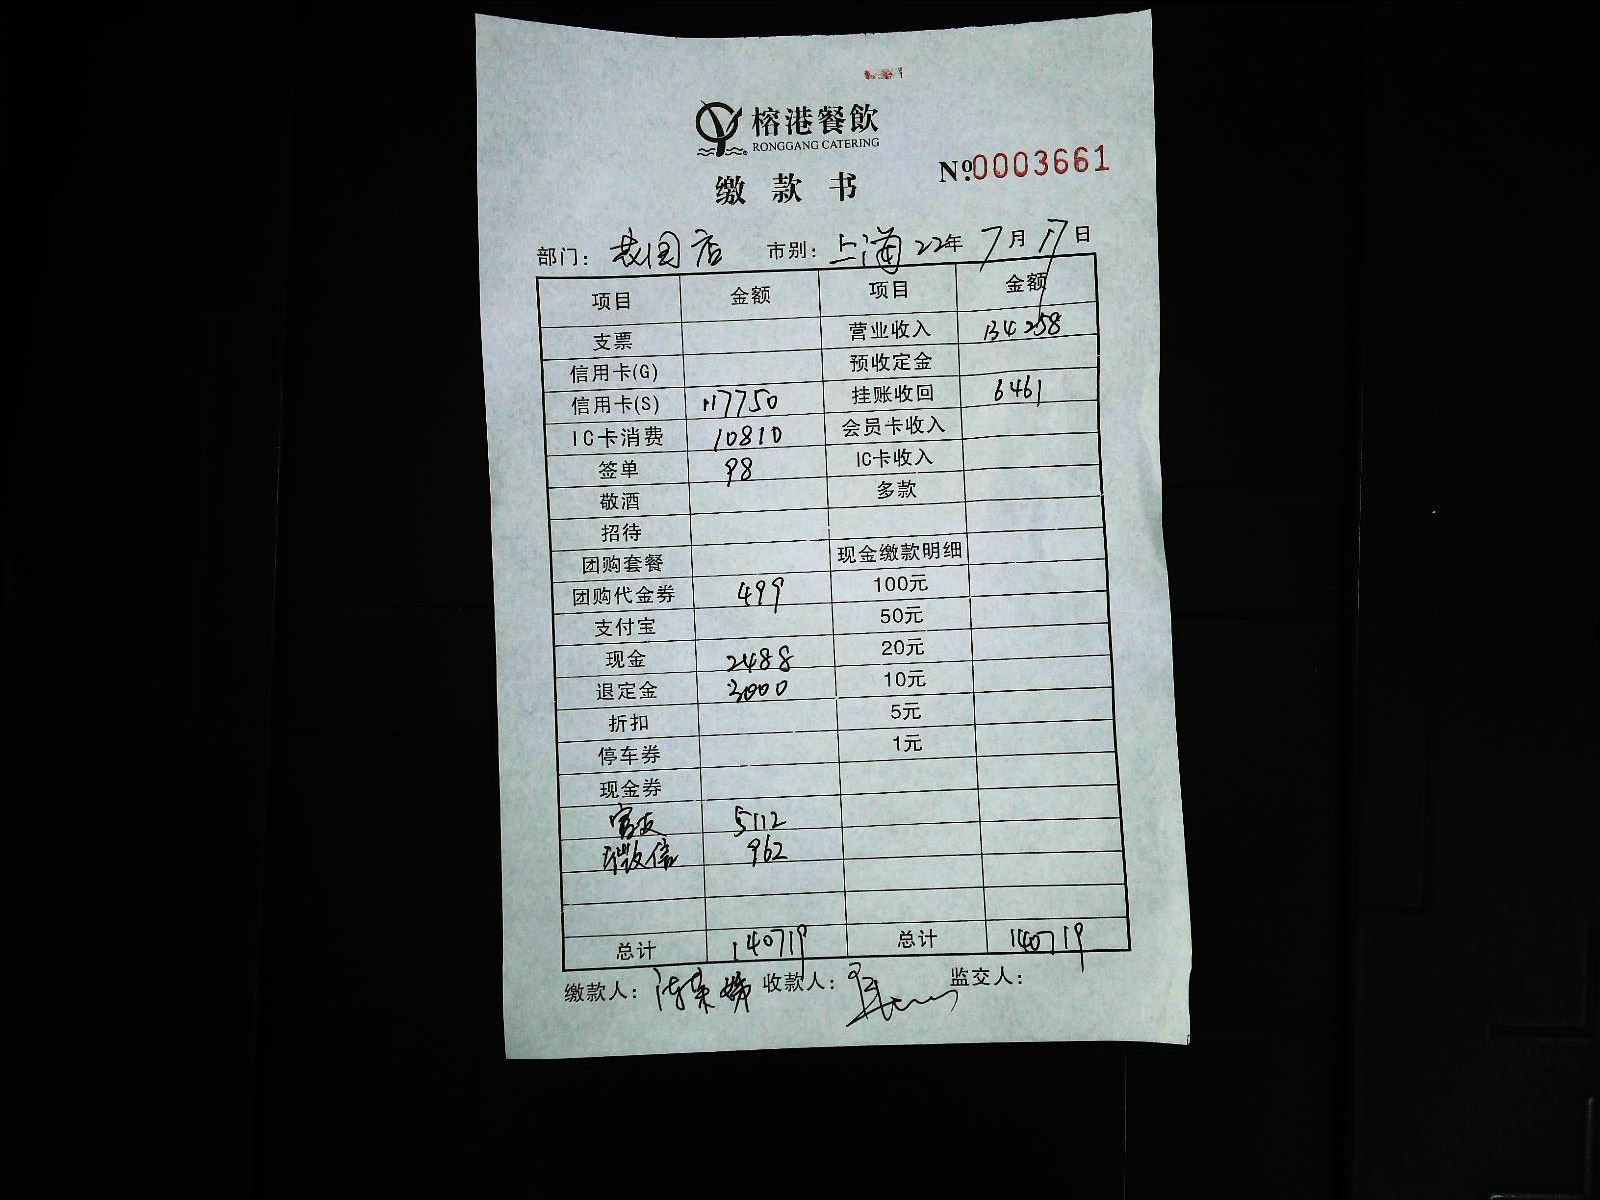 榕港餐飲
RONGGANG CATERING
缴款书
№0003661
部门： 店 市别：上海 22年7月17日
项目 金额 项目 金额
支票 营业收入 134258
信用卡(G) 预收定金
信用卡(S) 117750 挂账收回 6461
IC卡消费 10810 会员卡收入
签单 98 IC卡收入
敬酒 多款
招待
团购套餐 现金缴款明细
团购代金券 499 100元
支付宝 50元
现金 2488 20元
退定金 3000 10元
折扣 5元
停车券 1元
现金券
5112
微信 962
总计 140719 总计 140719
缴款人： 收款人： 监交人：